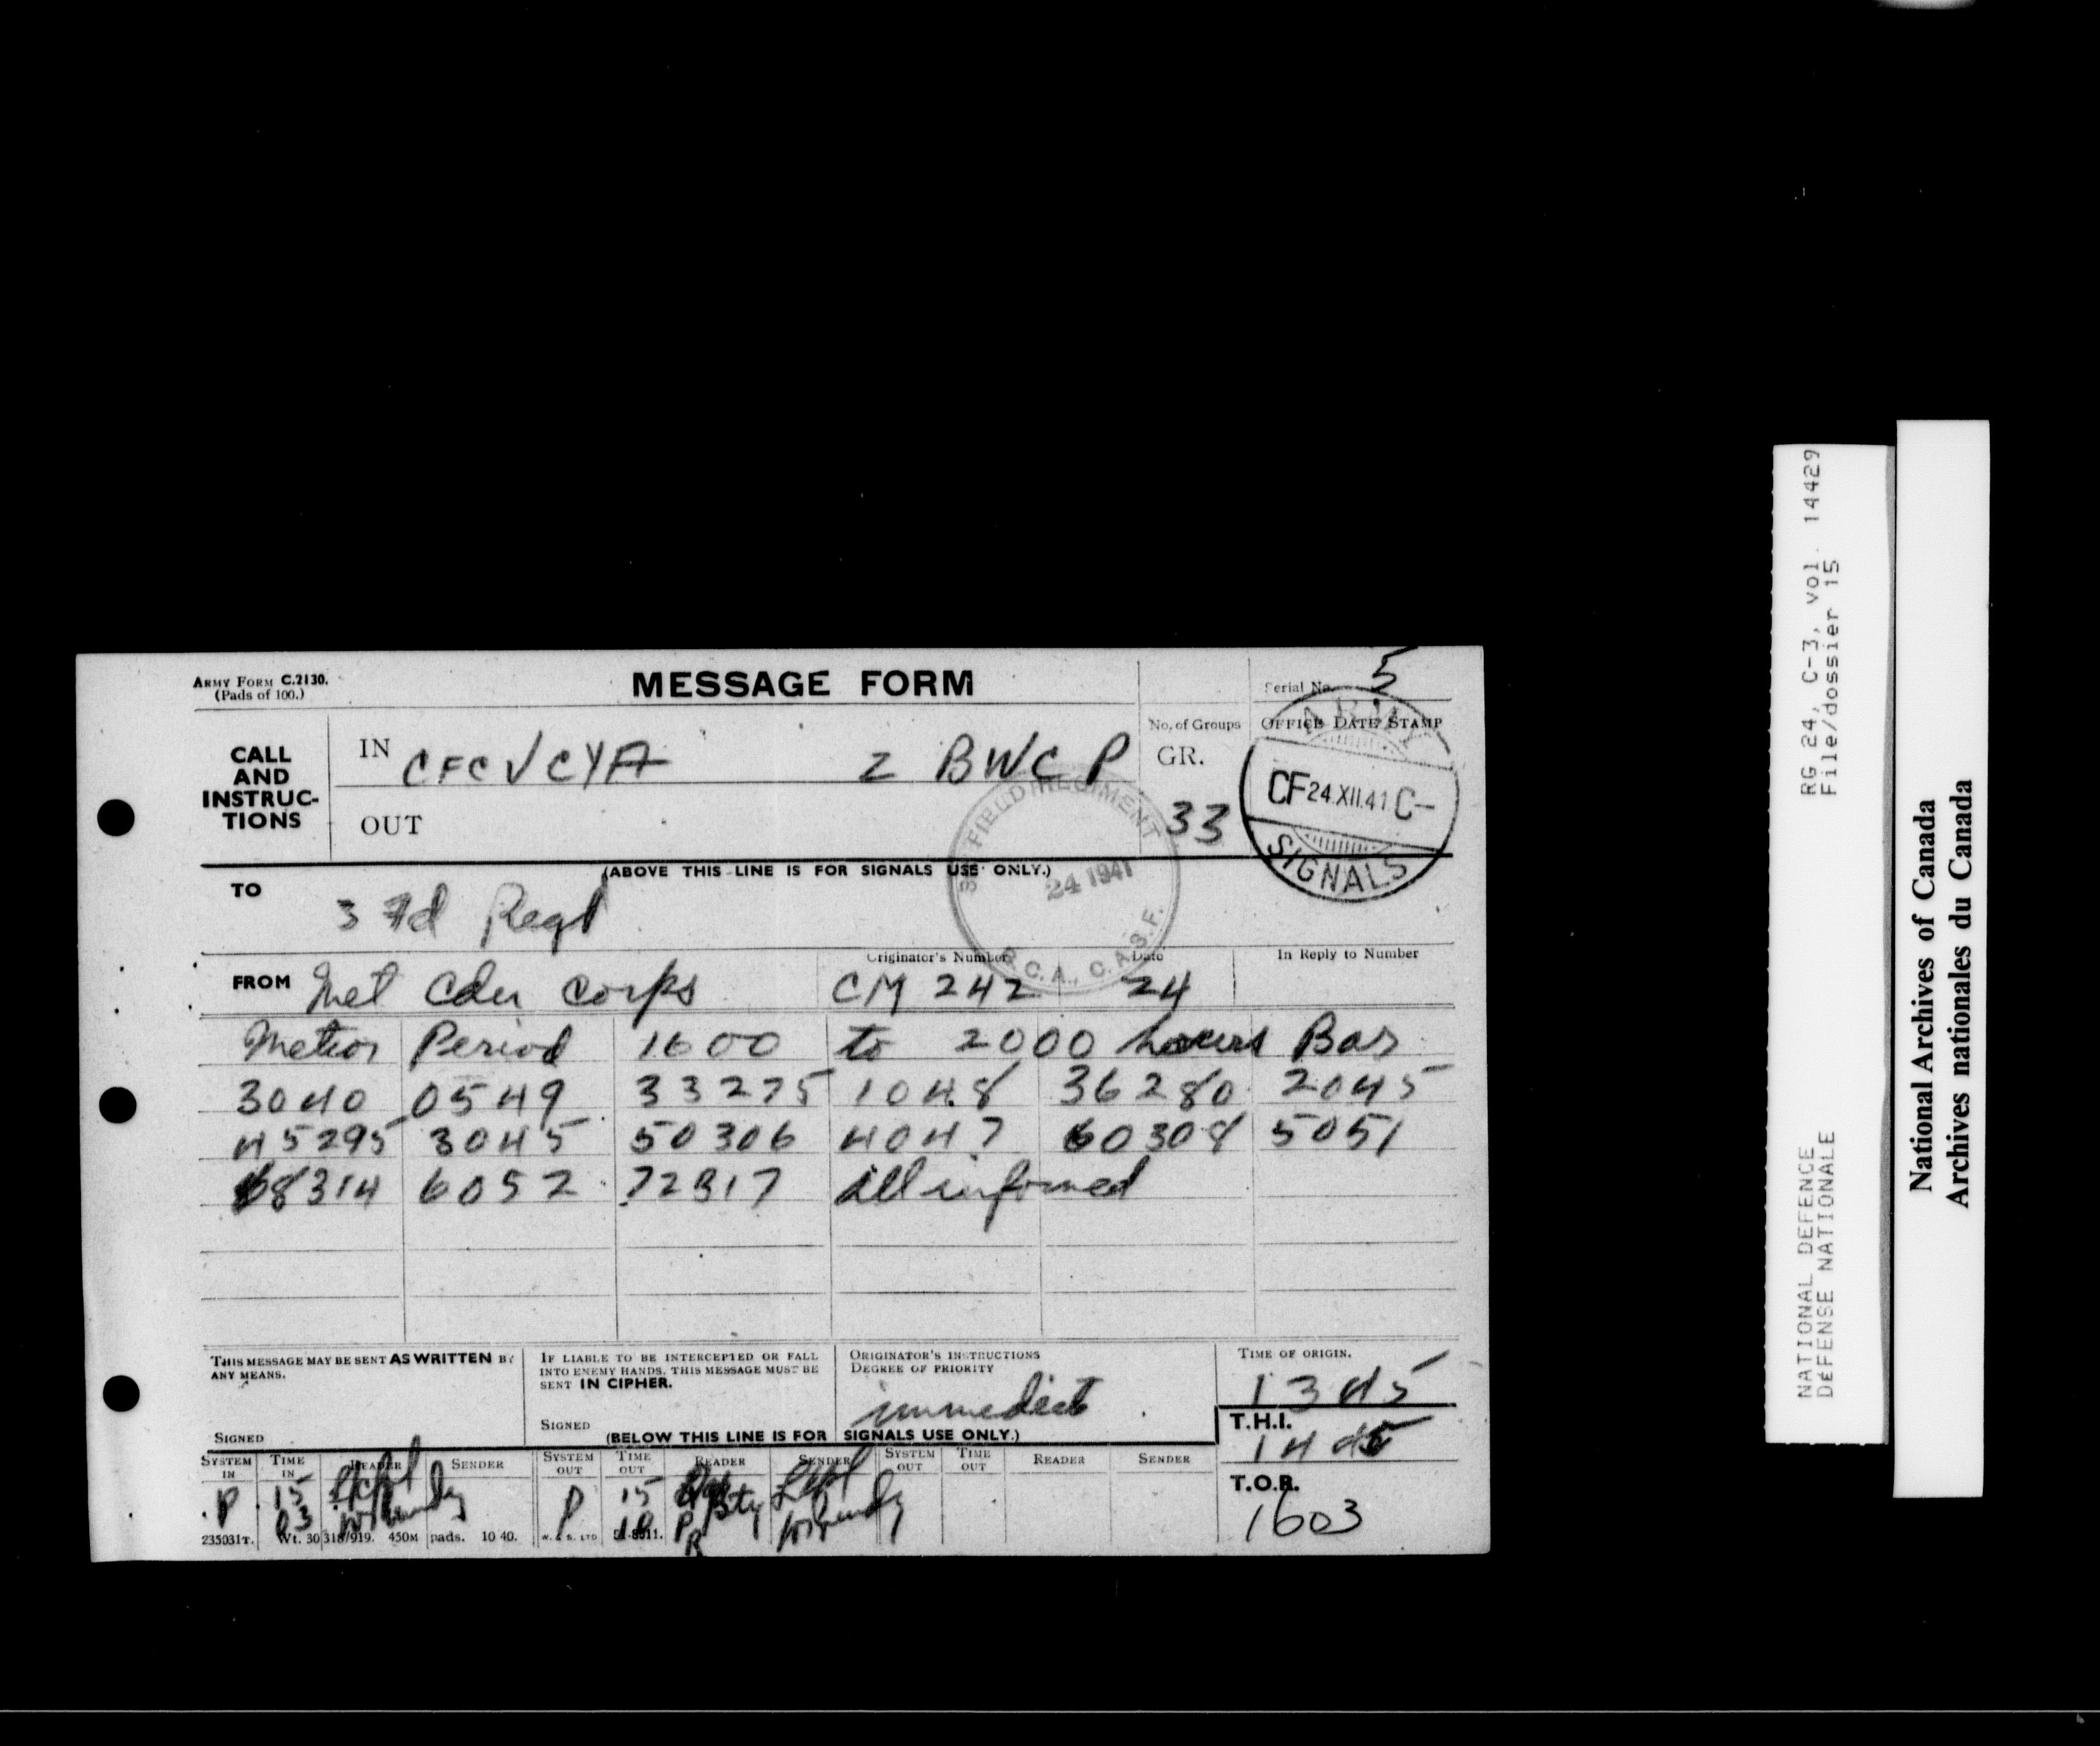 ARMY FORM C.2130.
(Pads of 100.)
MESSAGE FORM
Serial No. 5
CALL AND INSTRUC-TIONS
IN CFC V CYA Z BWC P
OUT
No. of Groups
GR.
33
OFFICE DATE STAMP
ARMY
CF 24.XII.41 C-
SIGNALS
(ABOVE THIS LINE IS FOR SIGNALS USE ONLY.)
FIELD REGIMENT
24 1941
R.C.A., C.A.S.F.
TO 3 Fd Regt
FROM Met Cdn Corps
Originator's Number CM 242
Date 24
In Reply to Number
Meteor Period 1600 to 2000 hours Bar
3040 0549 33275 1048 36280 2045
45295 3045 50306 4047 60308 5051
68314 6052 72317 All informed
THIS MESSAGE MAY BE SENT AS WRITTEN BY
ANY MEANS.
SIGNED
IF LIABLE TO BE INTERCEPTED OR FALL
INTO ENEMY HANDS, THIS MESSAGE MUST BE
SENT IN CIPHER.
SIGNED
ORIGINATOR'S INSTRUCTIONS
DEGREE OF PRIORITY
immediat
TIME OF ORIGIN.
1345
T.H.I.
1445
T.O.R.
1603
(BELOW THIS LINE IS FOR SIGNALS USE ONLY.)
SYSTEM IN TIME IN READER SENDER SYSTEM OUT TIME OUT READER SENDER SYSTEM OUT TIME OUT READER SENDER
P 15 P 15 Bty
03 10
235031T. Wt. 30318/919. 450M pads. 10 40. W. & S. LTD 51-8011.
RG 24, C-3, vol. 14429
File/dossier 15
NATIONAL DEFENCE
DÉFENSE NATIONALE
National Archives of Canada
Archives nationales du Canada